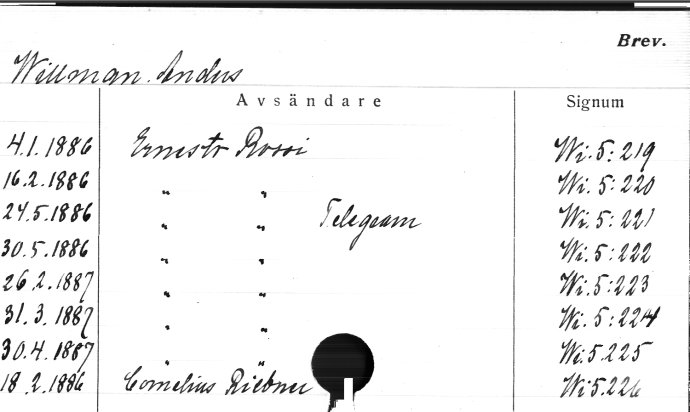 Brev.
Willman. Anders
Avsändare Signum
4.1.1886 Ernesto Rossi Wi. 5:219
16.2.1886 " " Wi. 5:220
24.5.1886 " " Telegram Wi. 5:221
30.5.1886 " " Wi. 5:222
26.2.1887 " " Wi. 5:223
31.3.1887 " " Wi. 5:224
30.4.1887 " " Wi.5.225
18.2.1886 Cornelius Riebner Wi5.226